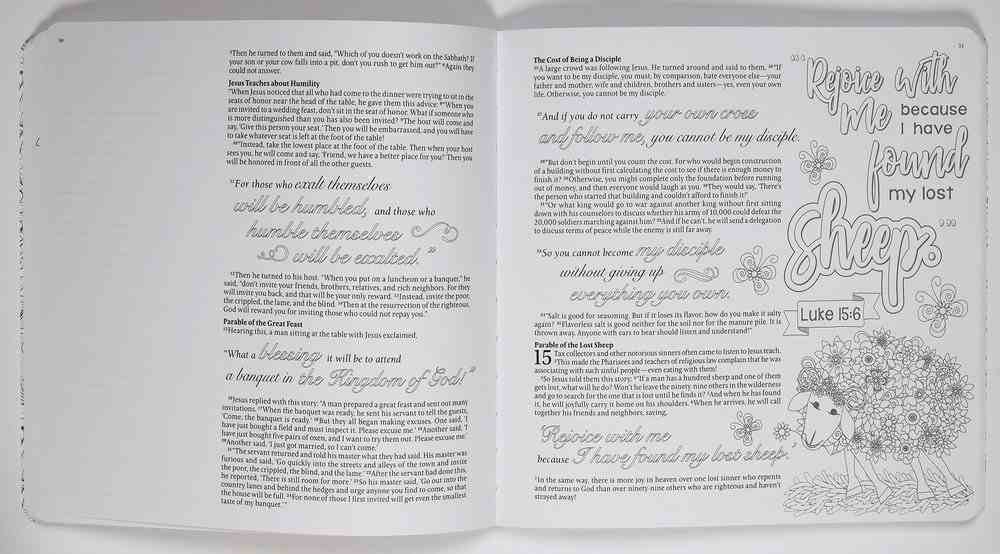 ⁵Then he turned to them and said, "Which of you doesn't work on the Sabbath? If
your son or your cow falls into a pit, don't you rush to get him out?" ⁶Again they
could not answer.
Jesus Teaches about Humility
⁷When Jesus noticed that all who had come to the dinner were trying to sit in the
seats of honor near the head of the table, he gave them this advice: ⁸"When you
are invited to a wedding feast, don't sit in the seat of honor. What if someone who
is more distinguished than you has also been invited? ⁹The host will come and
say, 'Give this person your seat.' Then you will be embarrassed, and you will have
to take whatever seat is left at the foot of the table!
¹⁰"Instead, take the lowest place at the foot of the table. Then when your host
sees you, he will come and say, 'Friend, we have a better place for you!' Then you
will be honored in front of all the other guests.
¹¹For those who exalt themselves
will be humbled, and those who
humble themselves
will be exalted."
¹²Then he turned to his host. "When you put on a luncheon or a banquet," he
said, "don't invite your friends, brothers, relatives, and rich neighbors. For they
will invite you back, and that will be your only reward. ¹³Instead, invite the poor,
the crippled, the lame, and the blind. ¹⁴Then at the resurrection of the righteous,
God will reward you for inviting those who could not repay you."
Parable of the Great Feast
¹⁵Hearing this, a man sitting at the table with Jesus exclaimed,
"What a blessing it will be to attend
a banquet in the Kingdom of God!"
¹⁶Jesus replied with this story: "A man prepared a great feast and sent out many
invitations. ¹⁷When the banquet was ready, he sent his servant to tell the guests,
'Come, the banquet is ready.' ¹⁸But they all began making excuses. One said, 'I
have just bought a field and must inspect it. Please excuse me.' ¹⁹Another said, 'I
have just bought five pairs of oxen, and I want to try them out. Please excuse me.'
²⁰Another said, 'I just got married, so I can't come.'
²¹"The servant returned and told his master what they had said. His master was
furious and said, 'Go quickly into the streets and alleys of the town and invite
the poor, the crippled, the blind, and the lame.' ²²After the servant had done this,
he reported, 'There is still room for more.' ²³So his master said, 'Go out into the
country lanes and behind the hedges and urge anyone you find to come, so that
the house will be full. ²⁴For none of those I first invited will get even the smallest
taste of my banquet.'"
51
The Cost of Being a Disciple
²⁵A large crowd was following Jesus. He turned around and said to them, ²⁶"If
you want to be my disciple, you must, by comparison, hate everyone else—your
father and mother, wife and children, brothers and sisters—yes, even your own
life. Otherwise, you cannot be my disciple.
²⁷And if you do not carry your own cross
and follow me, you cannot be my disciple.
²⁸"But don't begin until you count the cost. For who would begin construction
of a building without first calculating the cost to see if there is enough money to
finish it? ²⁹Otherwise, you might complete only the foundation before running
out of money, and then everyone would laugh at you. ³⁰They would say, 'There's
the person who started that building and couldn't afford to finish it!'
³¹"Or what king would go to war against another king without first sitting
down with his counselors to discuss whether his army of 10,000 could defeat the
20,000 soldiers marching against him? ³²And if he can't, he will send a delegation
to discuss terms of peace while the enemy is still far away.
³³So you cannot become my disciple
without giving up
everything you own.
³⁴"Salt is good for seasoning. But if it loses its flavor, how do you make it salty
again? ³⁵Flavorless salt is good neither for the soil nor for the manure pile. It is
thrown away. Anyone with ears to hear should listen and understand!"
Parable of the Lost Sheep
15 Tax collectors and other notorious sinners often came to listen to Jesus teach.
²This made the Pharisees and teachers of religious law complain that he was
associating with such sinful people—even eating with them!
³So Jesus told them this story: ⁴"If a man has a hundred sheep and one of them
gets lost, what will he do? Won't he leave the ninety-nine others in the wilderness
and go to search for the one that is lost until he finds it? ⁵And when he has found
it, he will joyfully carry it home on his shoulders. ⁶When he arrives, he will call
together his friends and neighbors, saying,
'Rejoice with me
because I have found my lost sheep.'
⁷In the same way, there is more joy in heaven over one lost sinner who repents
and returns to God than over ninety-nine others who are righteous and haven't
strayed away!
"Rejoice with
Me because
I have
found
my lost
Sheep"
Luke 15:6